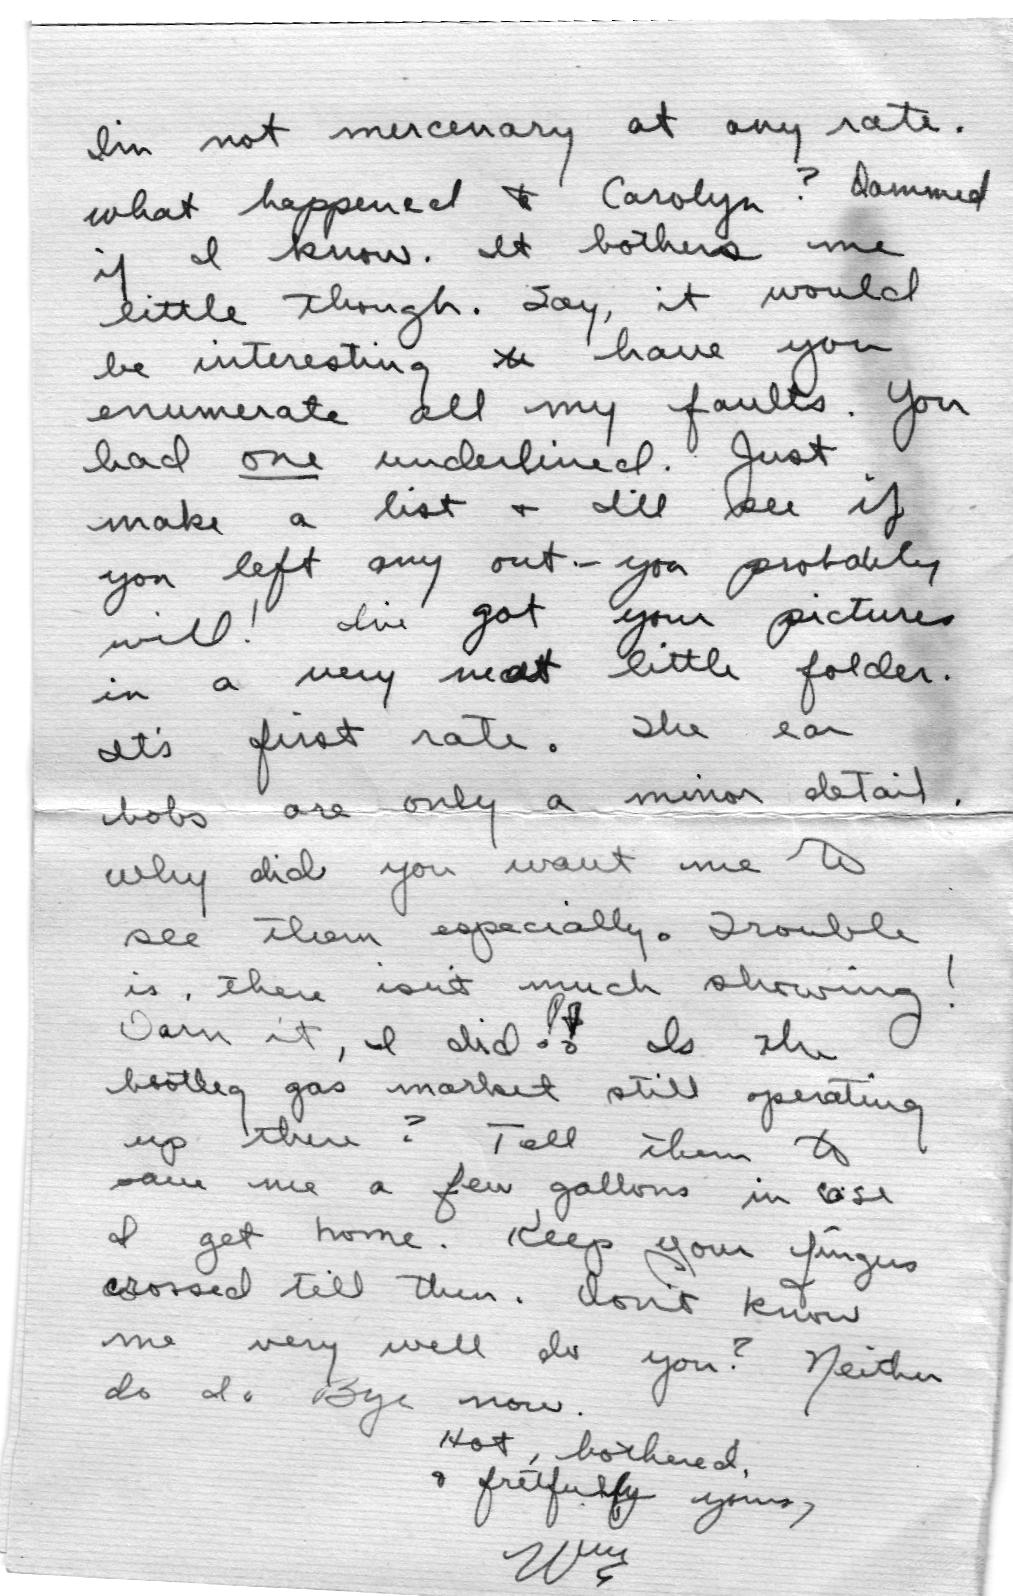 I'm not mercenary at any rate.
what happened to Carolyn? Dammed
if I know. It bothers me
little though. Say, it would
be interesting to have you
enumerate all my faults. You
had one underlined. Just
make a list + I'll see if
you left any out - you probably
will! I've got your pictures
in a very neat little folder.
It's first rate. The ear
bobs are only a minor detail.
Why did you want me to
see them especially. Trouble
is, there isn't much showing!
Darn it, I did!! Is the
bootleg gas market still operating
up there? Tell them to
save me a few gallons in case
I get home. Keep your fingers
crossed till then. Don't know
me very well do you? Neither
do I. Bye now.
Hot, bothered,
& fretfully yours,